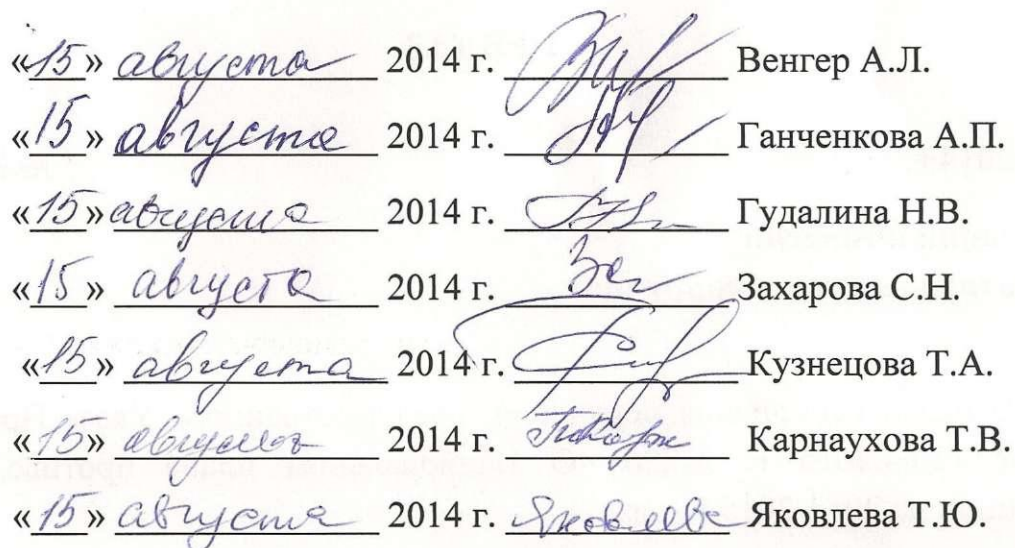 «15» августа 2014 г. Венгер А.Л.
«15» августа 2014 г. Ганченкова А.П.
«15» августа 2014 г. Гудалина Н.В.
«15» августа 2014 г. Захарова С.Н.
«15» августа 2014 г. Кузнецова Т.А.
«15» августа 2014 г. Карнаухова Т.В.
«15» августа 2014 г. Яковлева Яковлева Т.Ю.